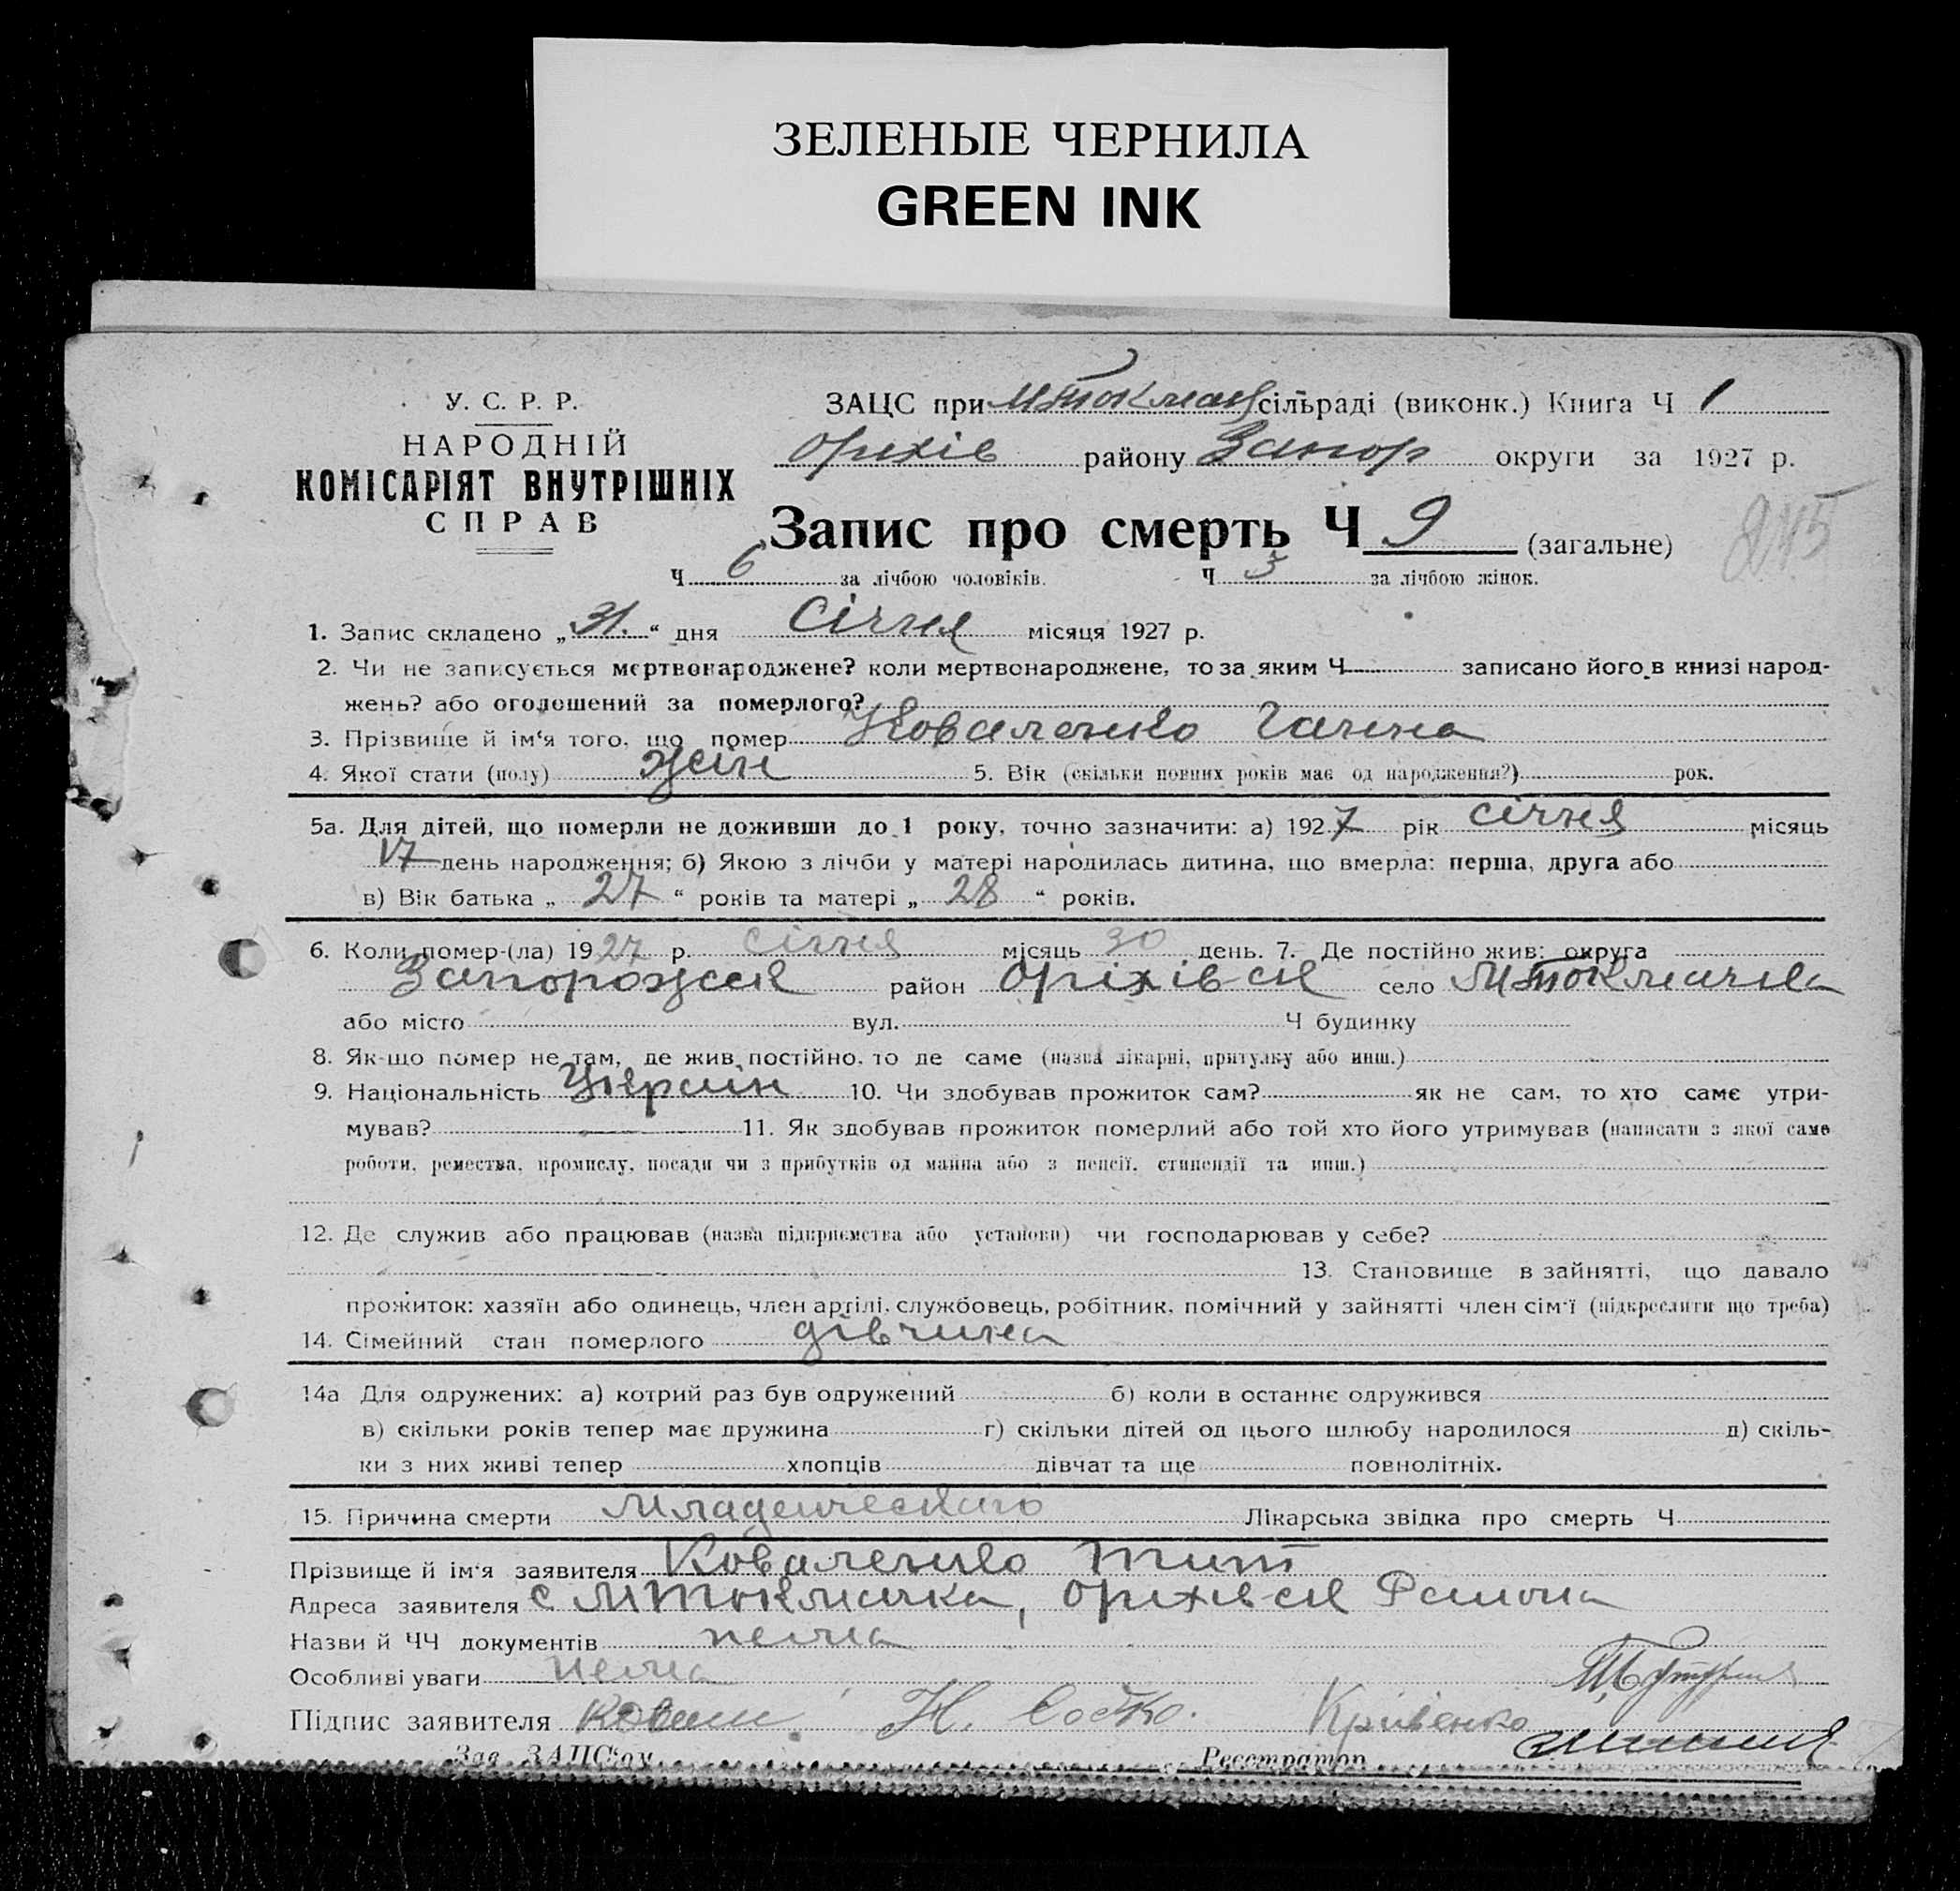 ЗЕЛЕНЫЕ ЧЕРНИЛА
GREEN INK
У. С. Р. Р.
НАРОДНІЙ
КОМІСАРІЯТ ВНУТРІШНІХ
СПРАВ
ЗАЦС при МТокмач сільраді (виконк.) Книга Ч 1
Оріхів району Запор округи за 1927 р.
245
Запис про смерть Ч 9 (загальне)
Ч 6 за лічбою чоловіків. Ч 3 за лічбою жінок.
1. Запис складено „31.“ дня Січня місяця 1927 р.
2. Чи не записується мертвонароджене? коли мертвонароджене, то за яким Ч записано його в книзі народ-
жень? або оголошений за померлого?
3. Прізвище й ім‘я того, що помер Коваленко Ганна
4. Якої стати (полу) жін 5. Вік (скільки повних років має од народження?) рок.
5а. Для дітей, що померли не доживши до 1 року, точно зазначити: а) 1927 рік січня місяць
17 день народження; б) Якою з лічби у матері народилась дитина, що вмерла: перша, друга або
в) Вік батька „27“ років та матері „28“ років.
6. Коли помер-(ла) 1927 р. січня місяць 30 день. 7. Де постійно жив: округа
Запорожжя район Оріхівся село МТокмачка
або місто вул. Ч будинку
8. Як-що помер не там, де жив постійно, то де саме (назва лікарні, притулку або инш.)
9. Національність Україн 10. Чи здобував прожиток сам? як не сам, то хто саме утри-
мував? 11. Як здобував прожиток померлий або той хто його утримував (написати з якої саме
роботи, ремества, промислу, посади чи з прибутків од майна або з пенсії, стипендії та инш.)
12. Де служив або працював (назва підприємства або установи) чи господарював у себе?
13. Становище в зайнятті, що давало
прожиток: хазяїн або одинець, член артілі, службовець, робітник, помічний у зайнятті член сім‘ї (підкреслити що треба)
14. Сімейний стан померлого дівчина
14а Для одружених: а) котрий раз був одружений б) коли в останнє одружився
в) скільки років тепер має дружина г) скільки дітей од цього шлюбу народилося д) скіль-
ки з них живі тепер хлопців дівчат та ще повнолітніх.
15. Причина смерти Младенческаго Лікарська звідка про смерть Ч
Прізвище й ім‘я заявителя Коваленко Тит
Адреса заявителя с МТокмачка, Оріхівся Района
Назви й ЧЧ документів нема
Особливі уваги нема
Підпис заявителя Ковал Н. Кривенко
Зав. ЗАЦС‘ом Реєстратор